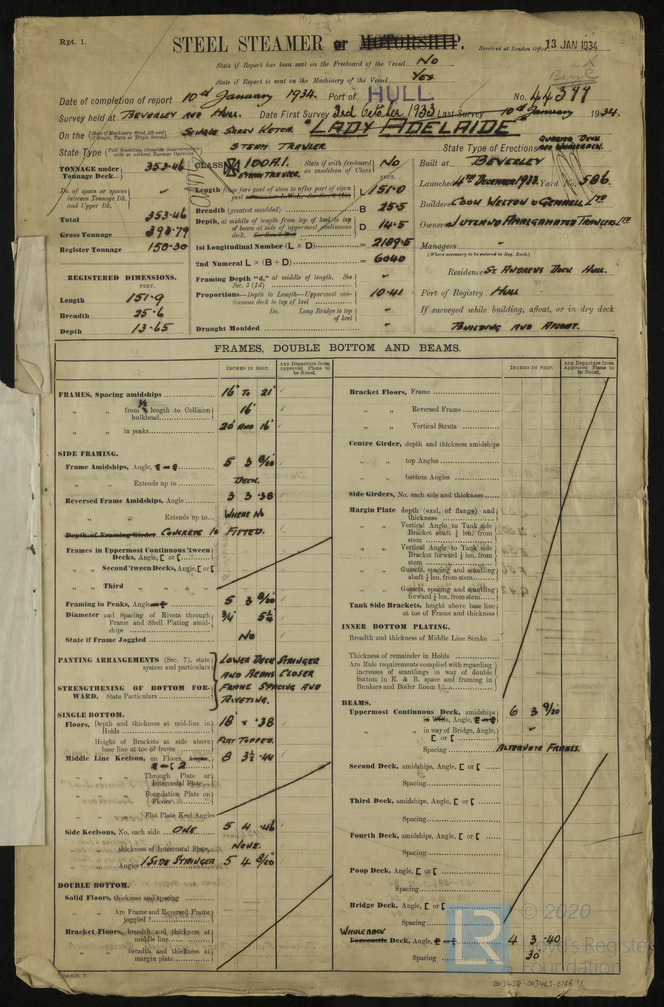 Rpt. 1.
STEEL STEAMER or MOTORSHIP.
Received at London Office 13 JAN 1934
State if Report has been sent on the Freeboard of the Vessel No
State if Report is sent on the Machinery of the Vessel Yes
Date of completion of report 10th January 1934. Port of HULL. No. 44399
Survey held at BEVERLEY AND HULL. Date First Survey 3rd October 1933 Last Survey 10th January 1934.
On the SINGLE SCREW KETCH "LADY ADELAIDE
STEAM TRAWLER
State Type
State Type of Erections QUARTER DECK AND WHALEBACK.
TONNAGE under Tonnage Deck 353.46
Do. of space or spaces between Tonnage Dk. and Upper Dk. -
Total 353.46
Gross Tonnage 398.79
Register Tonnage 150.30
REGISTERED DIMENSIONS.
FEET.
Length 151.9
Breadth 25.6
Depth 13.65
CLASS 100A1. STEAM TRAWLER. State if with freeboard as condition of Class No
FEET.
Length from fore part of stem to after part of stern post L 151.0
Breadth (greatest moulded) B 25.5
Depth, at middle of length from top of keel to top of beam at side of uppermost continuous deck. D 14.5
1st Longitudinal Number (L × D) = 2189.5
2nd Numeral L × (B + D) = 6040
Framing Depth "d," at middle of length. See Sec. 3 (1d) -
Proportions—Depth to Length—Uppermost continuous deck to top of keel 10.41
Do. Long Bridge to top of keel -
Draught Moulded -
Built at BEVERLEY
Launched 4TH DECEMBER 1933 Yard No. 586
Builders COOK WELTON & GEMMELL LTD
Owners JUTLAND AMALGAMATED TRAWLERS LTD
Managers -
(Where necessary to be entered in Reg. Book.)
Residence ST ANDREWS DOCK HULL.
Port of Registry HULL
If surveyed while building, afloat, or in dry dock
BUILDING AND AFLOAT.
FRAMES, DOUBLE BOTTOM AND BEAMS.
INCHES IN SHIP.
Any Departure from Approved Plans to be Noted.
FRAMES, Spacing amidships 16" TO 21"
„ „ from ⅕ length to Collision bulkhead 16"
„ „ in peaks 20" AND 16"
SIDE FRAMING.
Frame Amidships, Angle, [ or [ 5 3 8/20
„ „ Extends up to DECK.
Reversed Frame Amidships, Angle 3 3 .38
„ „ Extends up to WHERE NO
Depth of Framing Girder CONCRETE IS FITTED.
Frames in Uppermost Continuous 'tween Decks, Angle, [ or [
„ „ Second 'tween Decks, Angle, [ or [
„ „ Third „ „ „
Framing in Peaks, Angle or [ 5 3 8/20
Diameter and Spacing of Rivets through Frame and Shell Plating amidships 3/4 5¼
State if Frame Joggled No
PANTING ARRANGEMENTS (Sec. 7), state system and particulars LOWER DECK STRINGER AND BEAMS CLOSER
STRENGTHENING OF BOTTOM FORWARD. State Particulars FRAME SPACING AND RIVETING.
SINGLE BOTTOM.
Floors, Depth and thickness at mid-line in Holds 18 × .38
Height of Brackets at side above base line at toe of frame FLAT TOPPED.
Middle Line Keelson, on Floors, Angle, [ or [ 2 8 3½ .44
„ „ Through Plate or Intercostal Plate
„ „ Foundation Plate on Floors
„ „ Flat Plate Keel Angles
Side Keelsons, No. each side ONE 5 4 .46
„ „ thickness of Intercostal Plate NONE.
„ „ Angles 1 SIDE STRINGER 5 4 8/20
DOUBLE BOTTOM.
Solid Floors, thickness and spacing
„ „ Are Frame and Reversed Frame joggled?
Bracket Floors, breadth and thickness at middle line
„ „ breadth and thickness at margin plate
INCHES IN SHIP.
Any Departure from Approved Plans to be Noted.
Bracket Floors, Frame
„ „ Reversed Frame
„ „ Vertical Struts
Centre Girder, depth and thickness amidships
„ „ top Angles
„ „ bottom Angles
Side Girders, No. each side and thickness
Margin Plate depth (excl. of flange) and thickness
„ „ Vertical Angle to Tank side Bracket abaft ¼ len. from stem
„ „ Vertical Angle to Tank side Bracket forward ¼ len. from stem
„ „ Gussets, spacing and scantling abaft ¼ len. from stem
„ „ Gussets, spacing and scantling forward ¼ len. from stem
Tank Side Brackets, height above base line at toe of Frame and thickness
INNER BOTTOM PLATING.
Breadth and thickness of Middle Line Strake
Thickness of remainder in Holds
Are Rule requirements complied with regarding increases of scantlings in way of double bottom in E. & B. space and framing in Bunkers and Boiler Room
BEAMS.
Uppermost Continuous Deck, amidships in Wells, Angle, [ or [ 6 3 9/20
„ „ in way of Bridge, Angle, [ or [ -
Spacing ALTERNATE FRAMES.
Second Deck, amidships, Angle, [ or [
Spacing
Third Deck, amidships, Angle, [ or [
Spacing
Fourth Deck, amidships, Angle, [ or [
Spacing
Poop Deck, Angle, [ or [
Spacing
Bridge Deck, Angle, [ or [
Spacing
WHALEBACK
Forecastle Deck, Angle, [ or [ 4 3 .40
Spacing 30"
© 2020
Lloyd's Register
Foundation